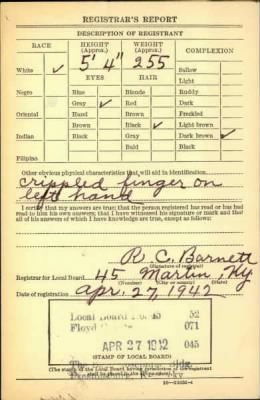 REGISTRAR'S REPORT
DESCRIPTION OF REGISTRANT
RACE HEIGHT (Approx.) WEIGHT (Approx.) COMPLEXION
5' 4" 255
White ✓ EYES HAIR Sallow
Light
Negro Blue Blonde Ruddy
Gray ✓ Red Dark
Oriental Hazel Brown Freckled
Brown Black ✓ Light brown
Indian Black Gray Dark brown ✓
Bald Black
Filipino
Other obvious physical characteristics that will aid in identification
crippled finger on
left hand
I certify that my answers are true; that the person registered has read or has had
read to him his own answers; that I have witnessed his signature or mark and that
all of his answers of which I have knowledge are true, except as follows:
R. C. Barnett
(Signature of registrar)
Registrar for Local Board 45 Martin, Ky
(Number) (City or county) (State)
Date of registration Apr. 27, 1942
Local Board 45 52
Floyd 071
APR 27 1942 045
(STAMP OF LOCAL BOARD)
(The stamp of the Local Board having jurisdiction of the registrant
shall be placed in the above space.)